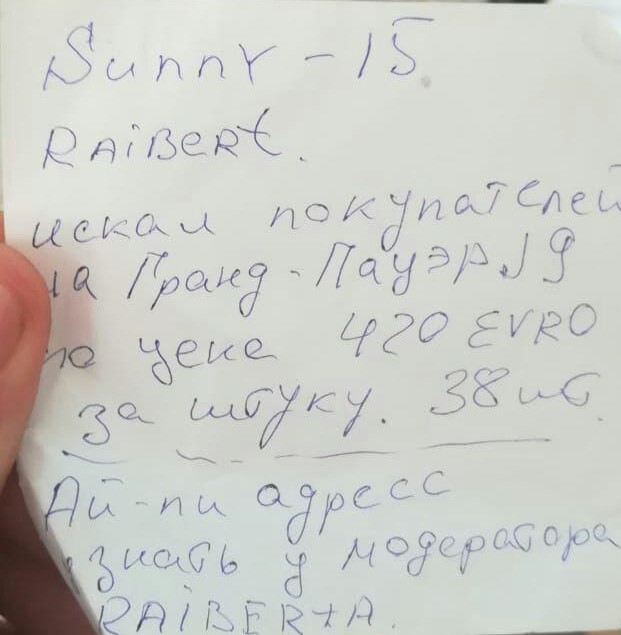 Sunny - 15
RAiBeRt.
искал покупателей
на Гранд-Пауэр 19
по цене 420 EVRO
за штуку. 38 шт.
Ай-пи адресс
узнать у модератора
RAIBERtA.